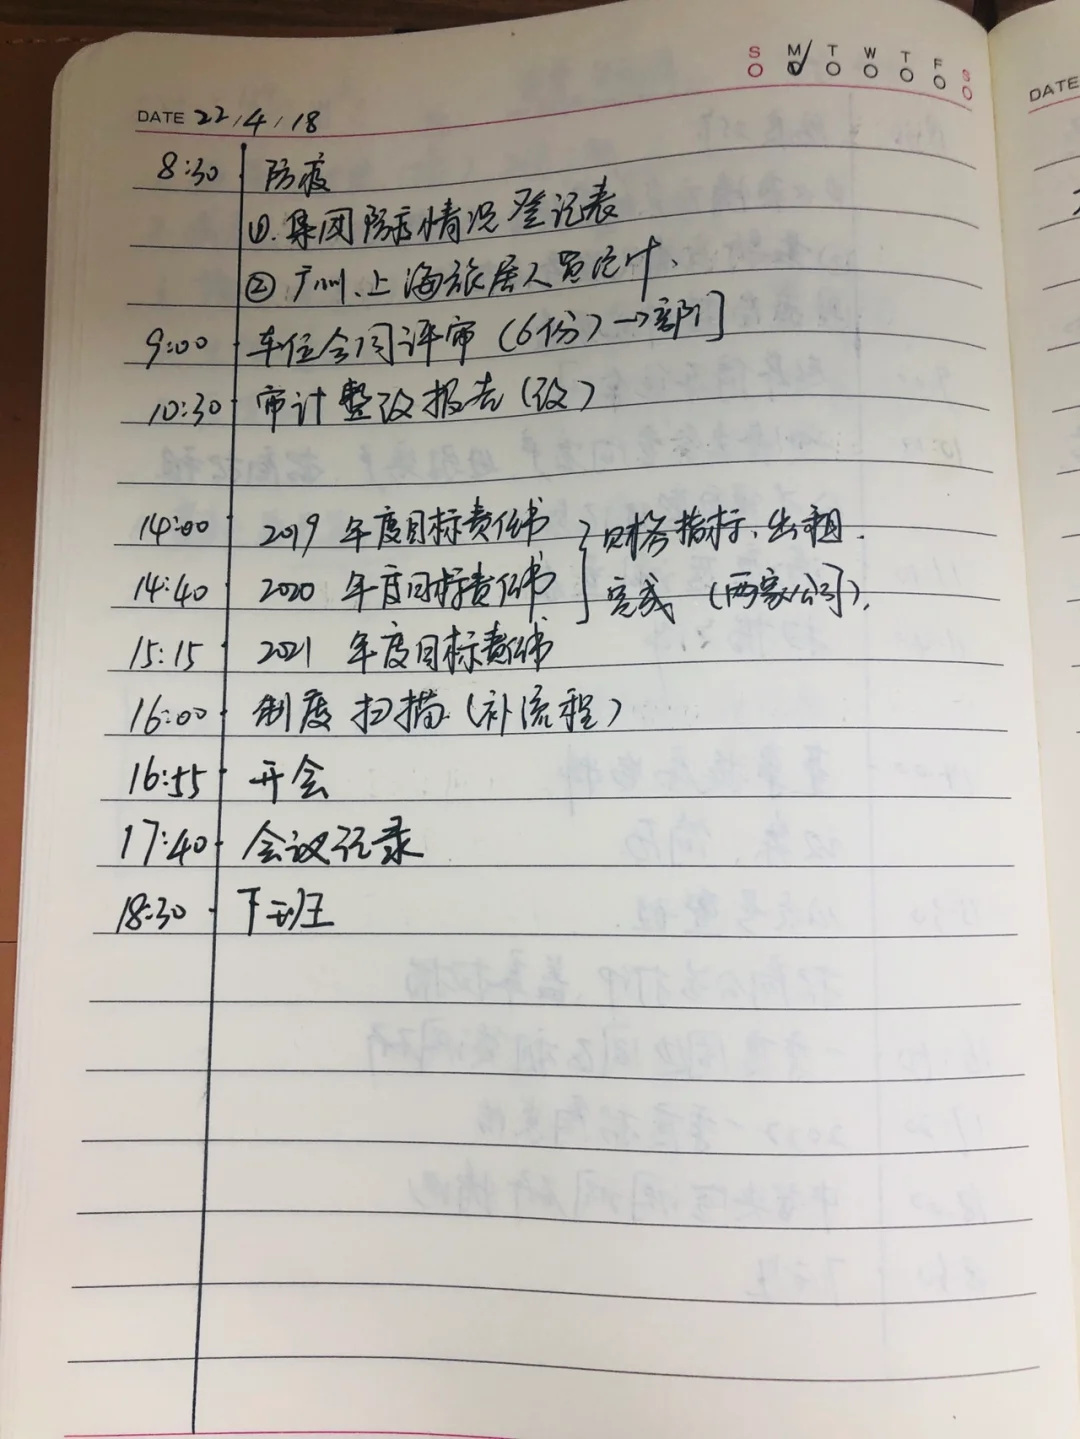 S M T W T F S
DATE 22/4/18
DATE
8:30 防疫
①.集团防疫情况登记表
②广州、上海旅居人员统计、
9:00 车位合同评审(6份)→部门
10:30 审计整改报告(改)
14:00 2019 年度目标责任书 } 财务指标、出租.
14:40 2020 年度目标责任书 完成 (两家公司).
15:15 2021 年度目标责任书
16:00 制度扫描(补流程)
16:55 开会
17:40 会议记录
18:30 下班